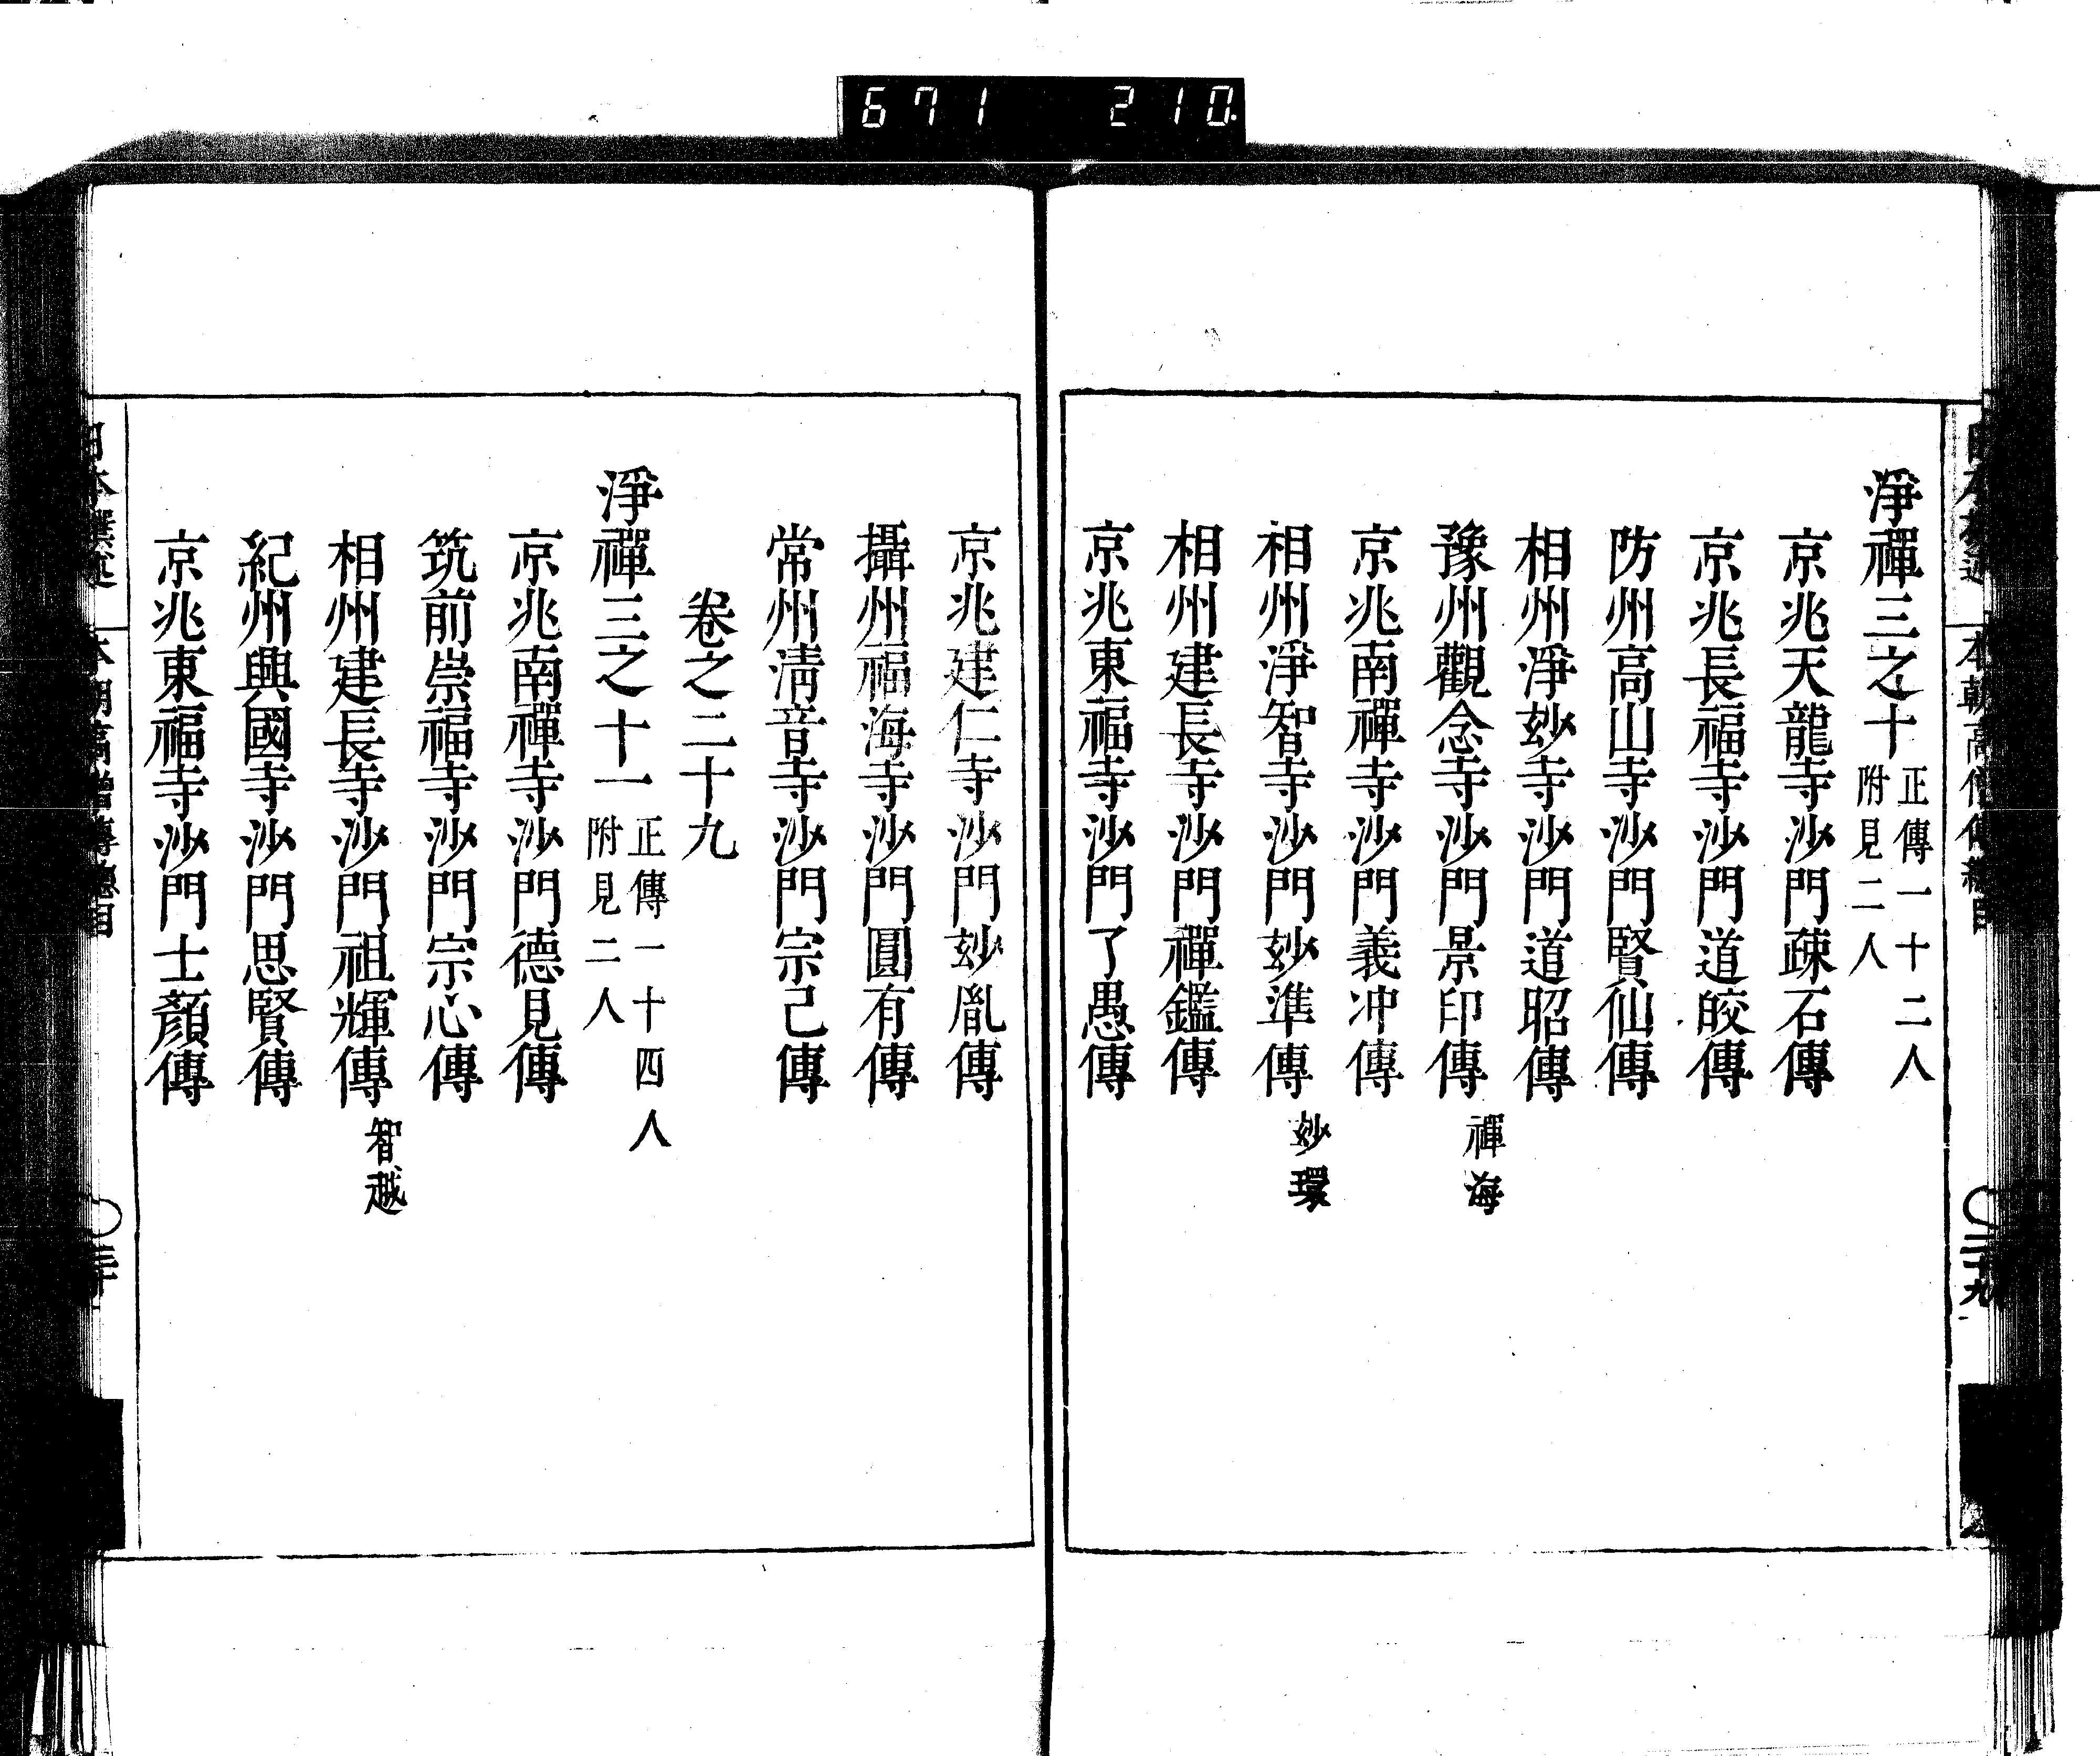 671 210
日本撰述 本朝高僧傳總目 二十九
淨禪三之十 正傳一十二人 附見二人
京兆天龍寺沙門疎石傳
京兆長福寺沙門道皎傳
防州高山寺沙門賢仙傳
相州淨玅寺沙門道昭傳
豫州觀念寺沙門景印傳 禪海
京兆南禪寺沙門義冲傳
相州淨智寺沙門玅準傳 玅環
相州建長寺沙門禪鑑傳
京兆東福寺沙門了愚傳
京兆建仁寺沙門玅胤傳
攝州福海寺沙門圓有傳
常州淸音寺沙門宗己傳
卷之二十九
淨禪三之十一 正傳一十四人 附見二人
京兆南禪寺沙門德見傳
筑前崇福寺沙門宗心傳
相州建長寺沙門祖輝傳 智越
紀州興國寺沙門思賢傳
京兆東福寺沙門士顏傳
日本撰述 本朝高僧傳總目